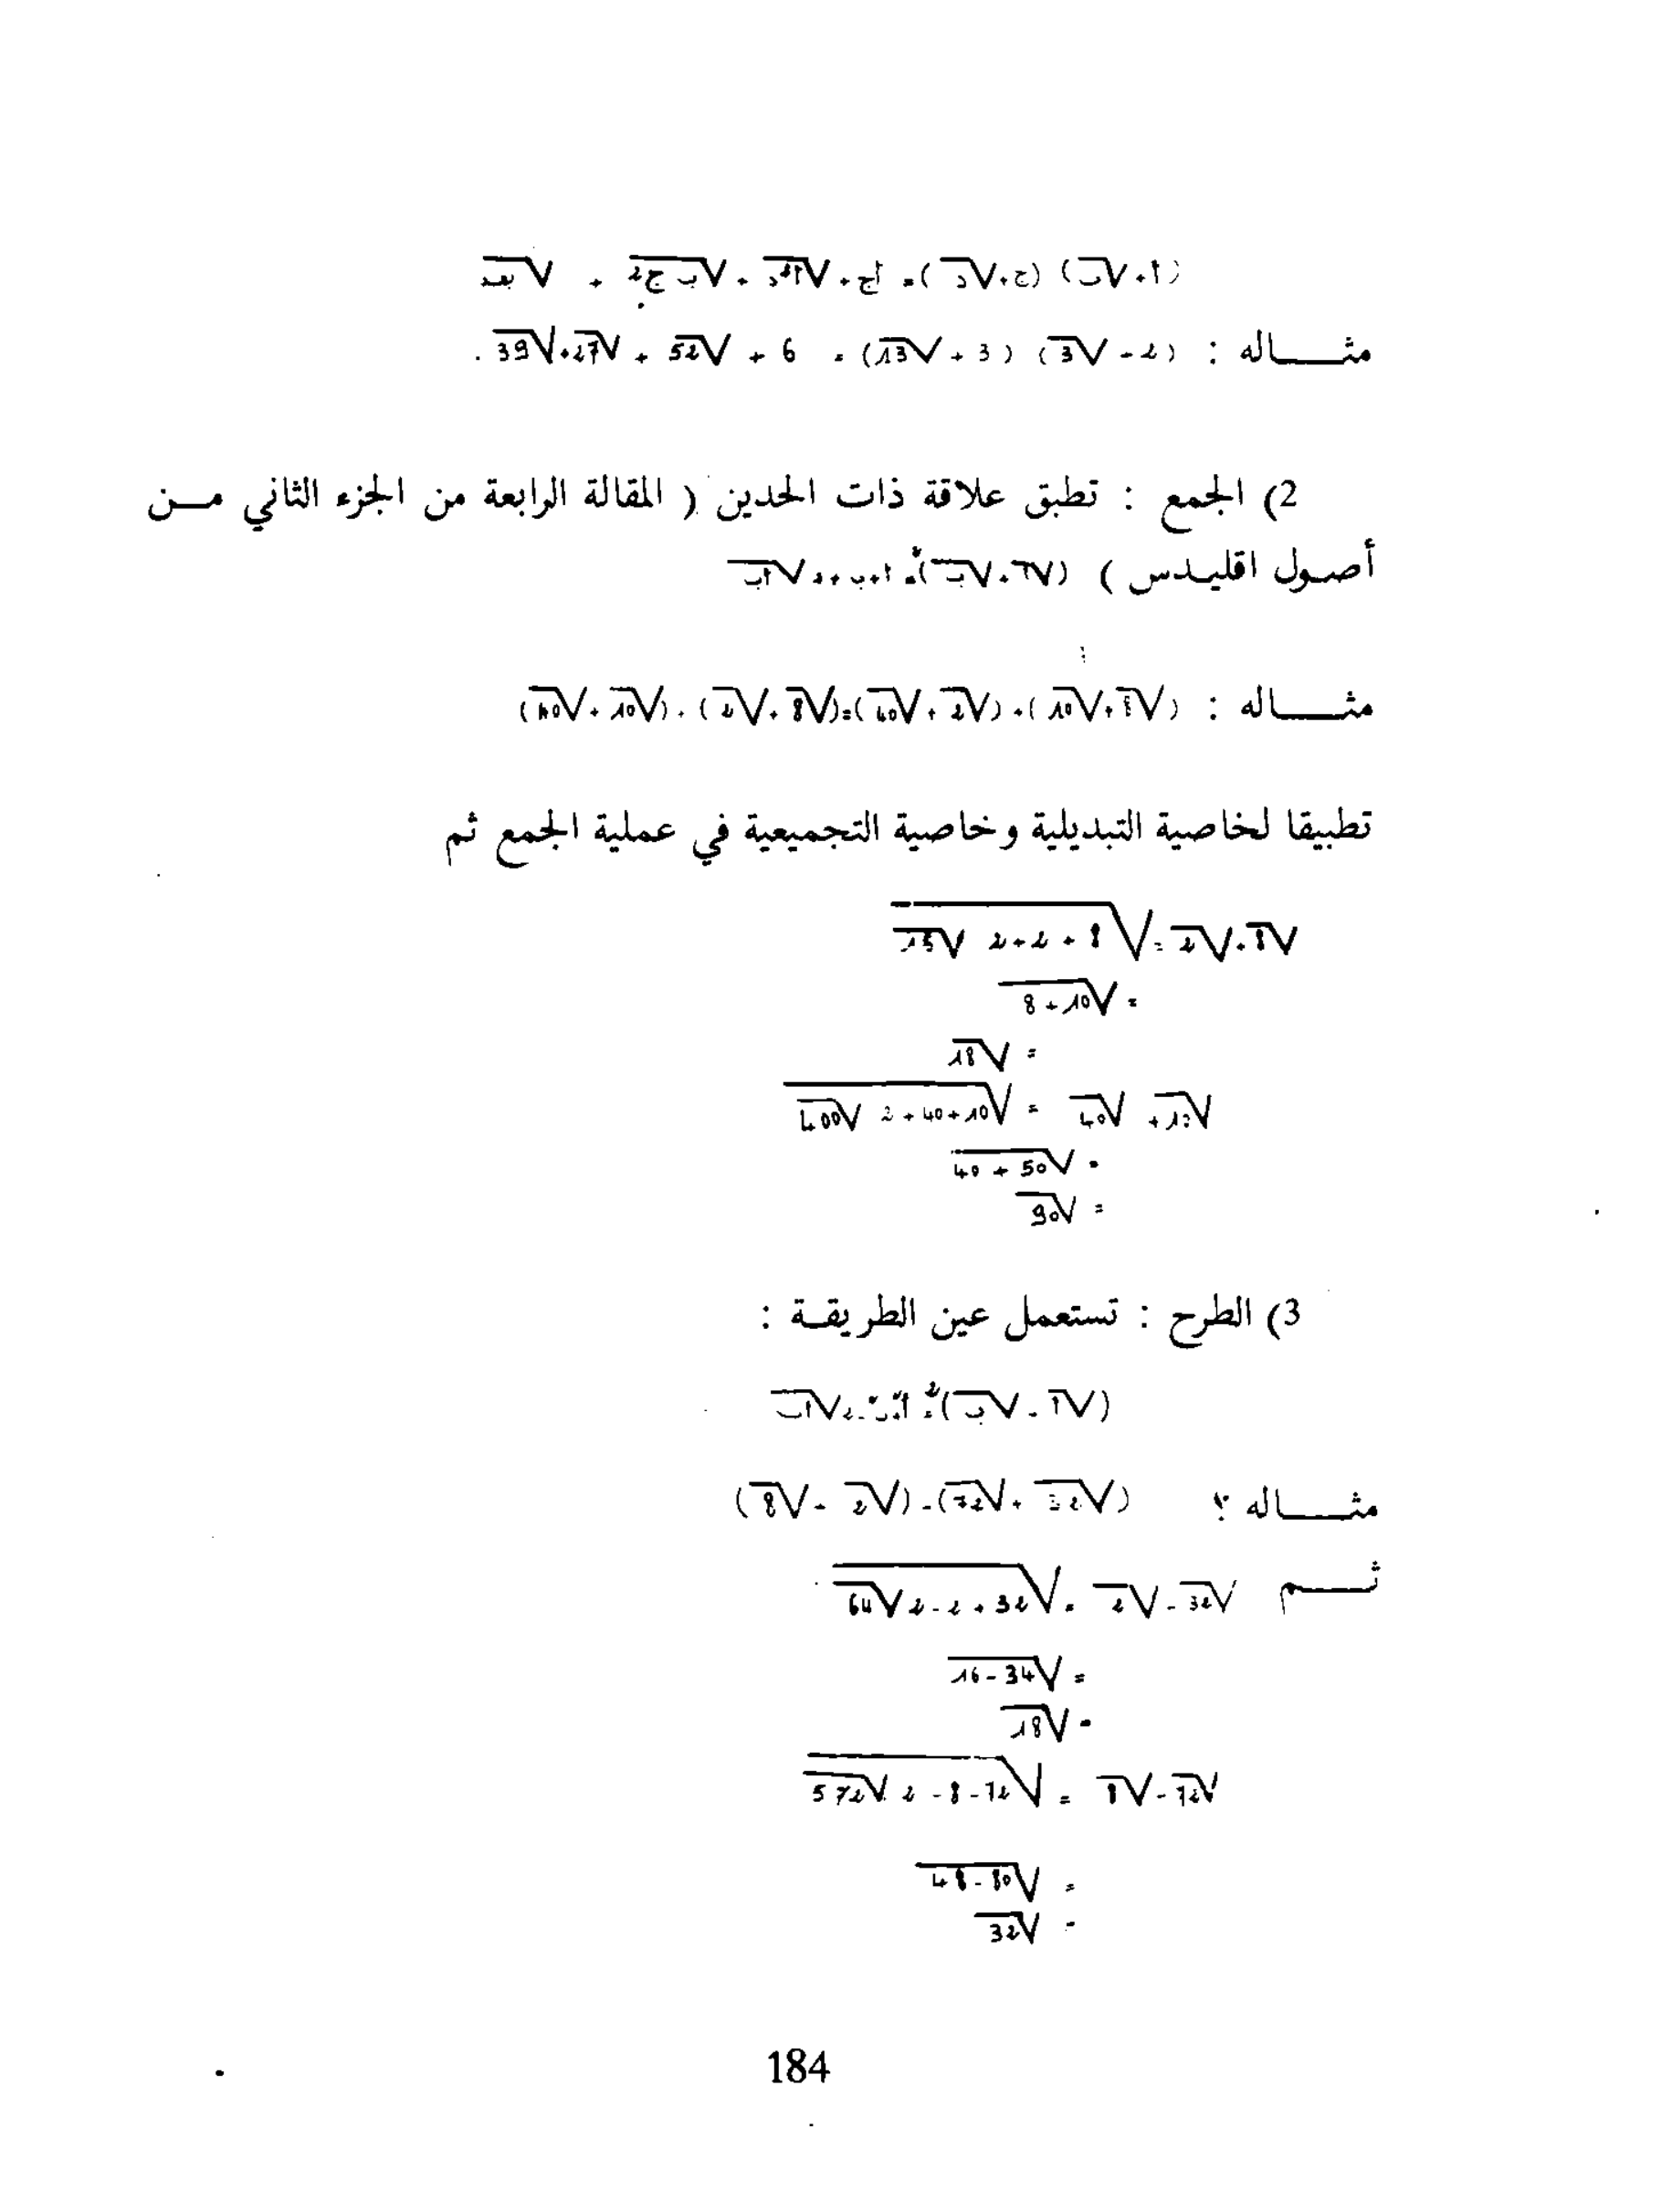 (أ+√ب) (ج+√د) = أج + √أ²د + √ب ج² + √بد
مثـــاله : (2 - √3) (3 + √13) = 6 + √52 + √27 + √39 .
2) الجمع : تطبق علاقة ذات الحدين ( المقالة الرابعة من الجزء الثاني مـن
أصول اقليدس ) (√أ+√ب)² = أ+ب+2√أب
مثـــاله : (√8+√10) + (√2+√40) = (√8+√2) + (√10+√40)
تطبيقا لخاصية التبديلية وخاصية التجميعية في عملية الجمع ثم
√8+√2 = √8+2+2
= √10+8
= √18
√10+ √40 = √10+40+2 √400
= √50+40
= √90
3) الطرح : تستعمل عين الطريقـة :
(√أ - √ب)²
مثـــاله : (√32 + √72) - (√2 - √8)
ثـــم √32 - √2 = √32+2-2√64
= √34-16
= √18
√72-√8 = √72-8-2 √572
= √80-48
= √32
184